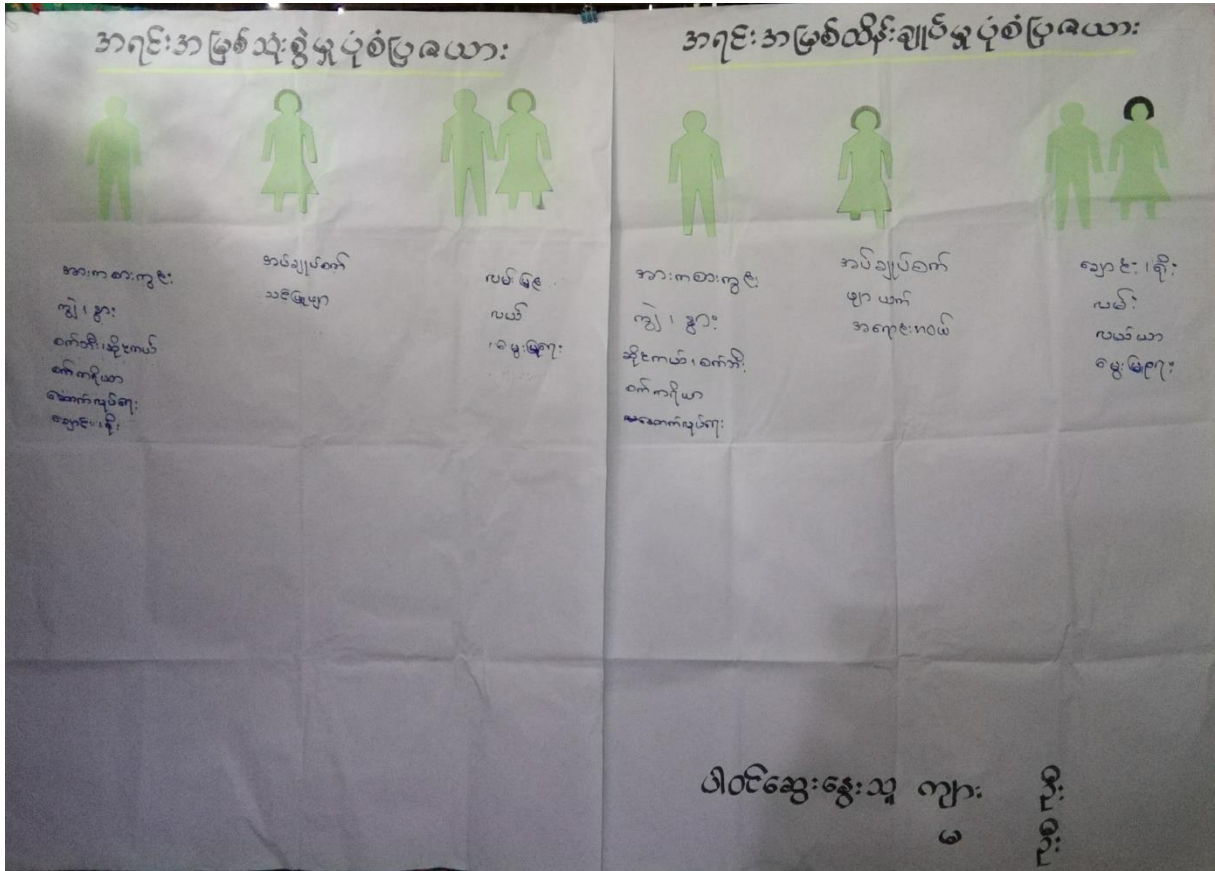 အရင်းအမြစ်သုံးစွဲမှုပုံစံပြဇယား
အားကစားကွင်း
ကျွဲ၊ နွား
စက်ဘီး၊ ဆိုင်ကယ်
စက်ကရိယာ
ဆောက်လုပ်ရေး
ချောင်း၊ ရိုး
အပ်ချုပ်စက်
သင်ဖြူးဖျာ
လမ်းမြေ
လယ်
မွေးမြူရေး
အရင်းအမြစ်ထိန်းချုပ်မှုပုံစံပြဇယား
အားကစားကွင်း
ကျွဲ၊ နွား
ဆိုင်ကယ်၊ စက်ဘီး
စက်ကရိယာ
ဆောက်လုပ်ရေး
အပ်ချုပ်စက်
ဖျာယက်
ချောင်း၊ ရိုး
လမ်း
လယ်ယာ
မွေးမြူရေး
ပါဝင်ဆွေးနွေးသူ ကျား ဦး
မ ဦး